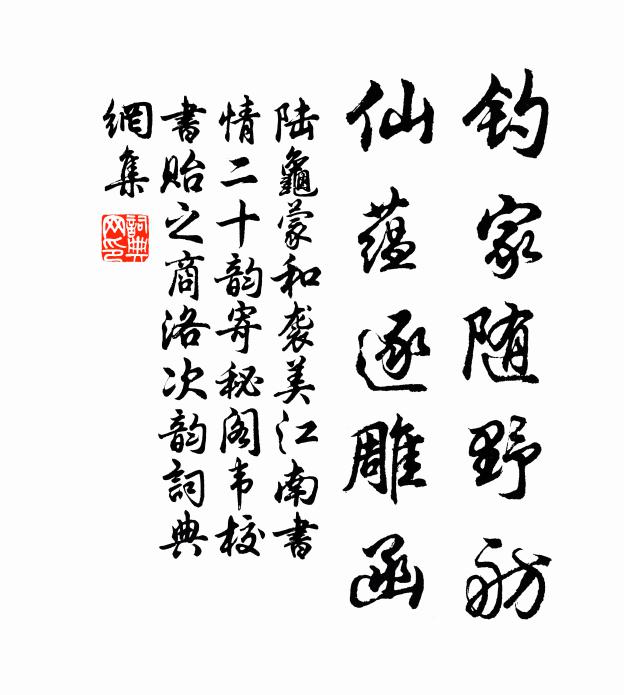 钓家随野舫
仙蕴逐雕函
陆龜蒙和袭美江南書
情二十韵寄秘阁韦校
書贻之商洛次韵詞典
網集
詞典
网印